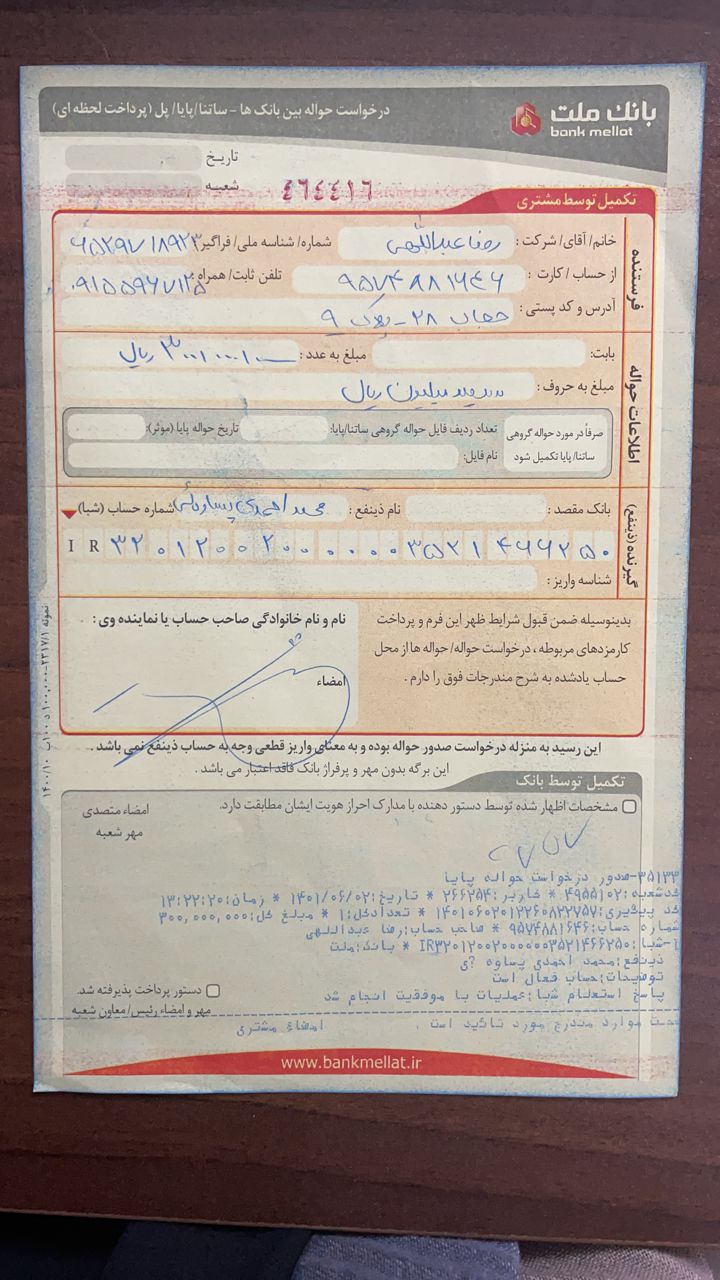 بانک ملت
bank mellat
درخواست حواله بین بانک ها - ساتنا/پایا/ پل (پرداخت لحظه ای)
تاریخ
شعبه
٤٦٤٤١٦
تکمیل توسط مشتری
فرستنده
خانم/ آقای/ شرکت : رضا عبداللهی شماره/ شناسه ملی/ فراگیر:
از حساب / کارت : ۹۵۷۴۸۸۱۶۴۶ تلفن ثابت/ همراه : ۰۹۱۵۵۹۶۷۱۲۵
آدرس و کد پستی : حجاب ۲۸ - پلاک ۹
اطلاعات حواله
بابت: مبلغ به عدد : ۳۰۰/۰۰۰/۰۰۰ ریال
مبلغ به حروف : سیصد میلیون ریال
صرفاً در مورد حواله گروهی ساتنا/ پایا تکمیل شود
تعداد ردیف فایل حواله گروهی ساتنا/پایا: تاریخ حواله پایا (موثر):
نام فایل:
گیرنده (ذینفع)
بانک مقصد : نام ذینفع : محمد احمدی شماره حساب (شبا)
I R ۳۲۰۱۲۰۰۲۰۰۰۰۰۰۳۵۲۱۴۶۶۲۵۰
شناسه واریز :
بدینوسیله ضمن قبول شرایط ظهر این فرم و پرداخت
کارمزدهای مربوطه ، درخواست حواله/ حواله ها از محل
حساب یادشده به شرح مندرجات فوق را دارم .
نام و نام خانوادگی صاحب حساب یا نماینده وی :
امضاء
این رسید به منزله درخواست صدور حواله بوده و به معنای واریز قطعی وجه به حساب ذینفع نمی باشد .
این برگه بدون مهر و پرفراژ بانک فاقد اعتبار می باشد .
تکمیل توسط بانک
مشخصات اظهار شده توسط دستور دهنده با مدارک احراز هویت ایشان مطابقت دارد.
امضاء متصدی
مهر شعبه
۳۵۱۳۳-صدور درخواست حواله پایا
کدشعبه:۴۹۵۵۱۰۲ * کاربر:۲۶۶۲۵۴ * تاریخ:۱۴۰۱/۰۶/۰۲ * زمان:۱۳:۲۲:۲۰
کد پیگیری:۱۴۰۱۰۶۰۲۰۱۲۲۶۰۸۲۲۷۵۷ * تعدادکل:۱ * مبلغ کل:۳۰۰,۰۰۰,۰۰۰
شماره حساب:۹۵۷۴۸۸۱۶۴۶ * صاحب حساب:رضا عبداللهی
۱-شبا:IR۳۲۰۱۲۰۰۲۰۰۰۰۰۰۳۵۲۱۴۶۶۲۵۰ * بانک:ملت
ذینفع:محمد احمدی پساوه ?ی
توضیحات:حساب فعال است
پاسخ استعلام شبا:عملیات با موفقیت انجام شد
صحت موارد مندرج مورد تائید است . امضاء مشتری
دستور پرداخت پذیرفته شد.
مهر و امضاء رئیس/ معاون شعبه
www.bankmellat.ir